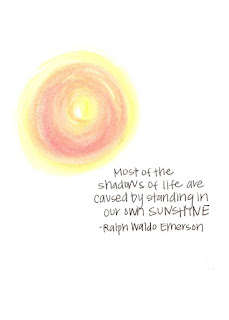 Most of the
shadows of life are
caused by standing in
our own SUNSHINE
-Ralph Waldo Emerson